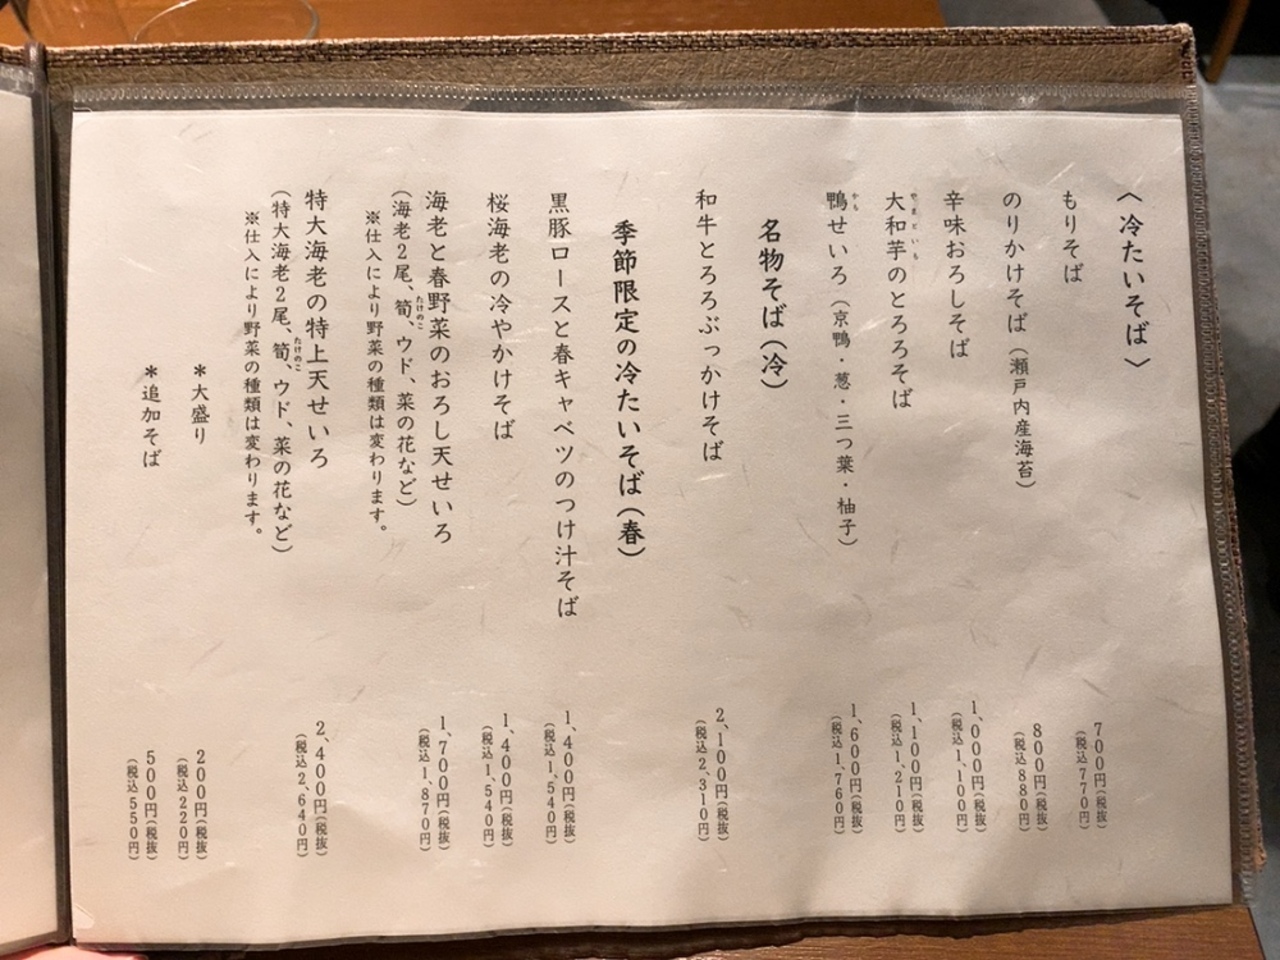 〈冷たいそば〉
もりそば
700円(税抜)
(税込770円)
のりかけそば(瀬戸内産海苔)
800円(税抜)
(税込880円)
辛味おろしそば
1,000円(税抜)
(税込1,100円)
大和芋のとろろそば
やまといも
1,100円(税抜)
(税込1,210円)
鴨せいろ(京鴨・葱・三つ葉・柚子)
かも
1,600円(税抜)
(税込1,760円)
名物そば(冷)
和牛とろろぶっかけそば
2,100円(税抜)
(税込2,310円)
季節限定の冷たいそば(春)
黒豚ロースと春キャベツのつけ汁そば
1,400円(税抜)
(税込1,540円)
桜海老の冷やかけそば
1,400円(税抜)
(税込1,540円)
海老と春野菜のおろし天せいろ
1,700円(税抜)
(税込1,870円)
(海老2尾、筍、ウド、菜の花など)
たけのこ
※仕入により野菜の種類は変わります。
特大海老の特上天せいろ
2,400円(税抜)
(税込2,640円)
(特大海老2尾、筍、ウド、菜の花など)
たけのこ
※仕入により野菜の種類は変わります。
*大盛り
200円(税抜)
(税込220円)
*追加そば
500円(税抜)
(税込550円)